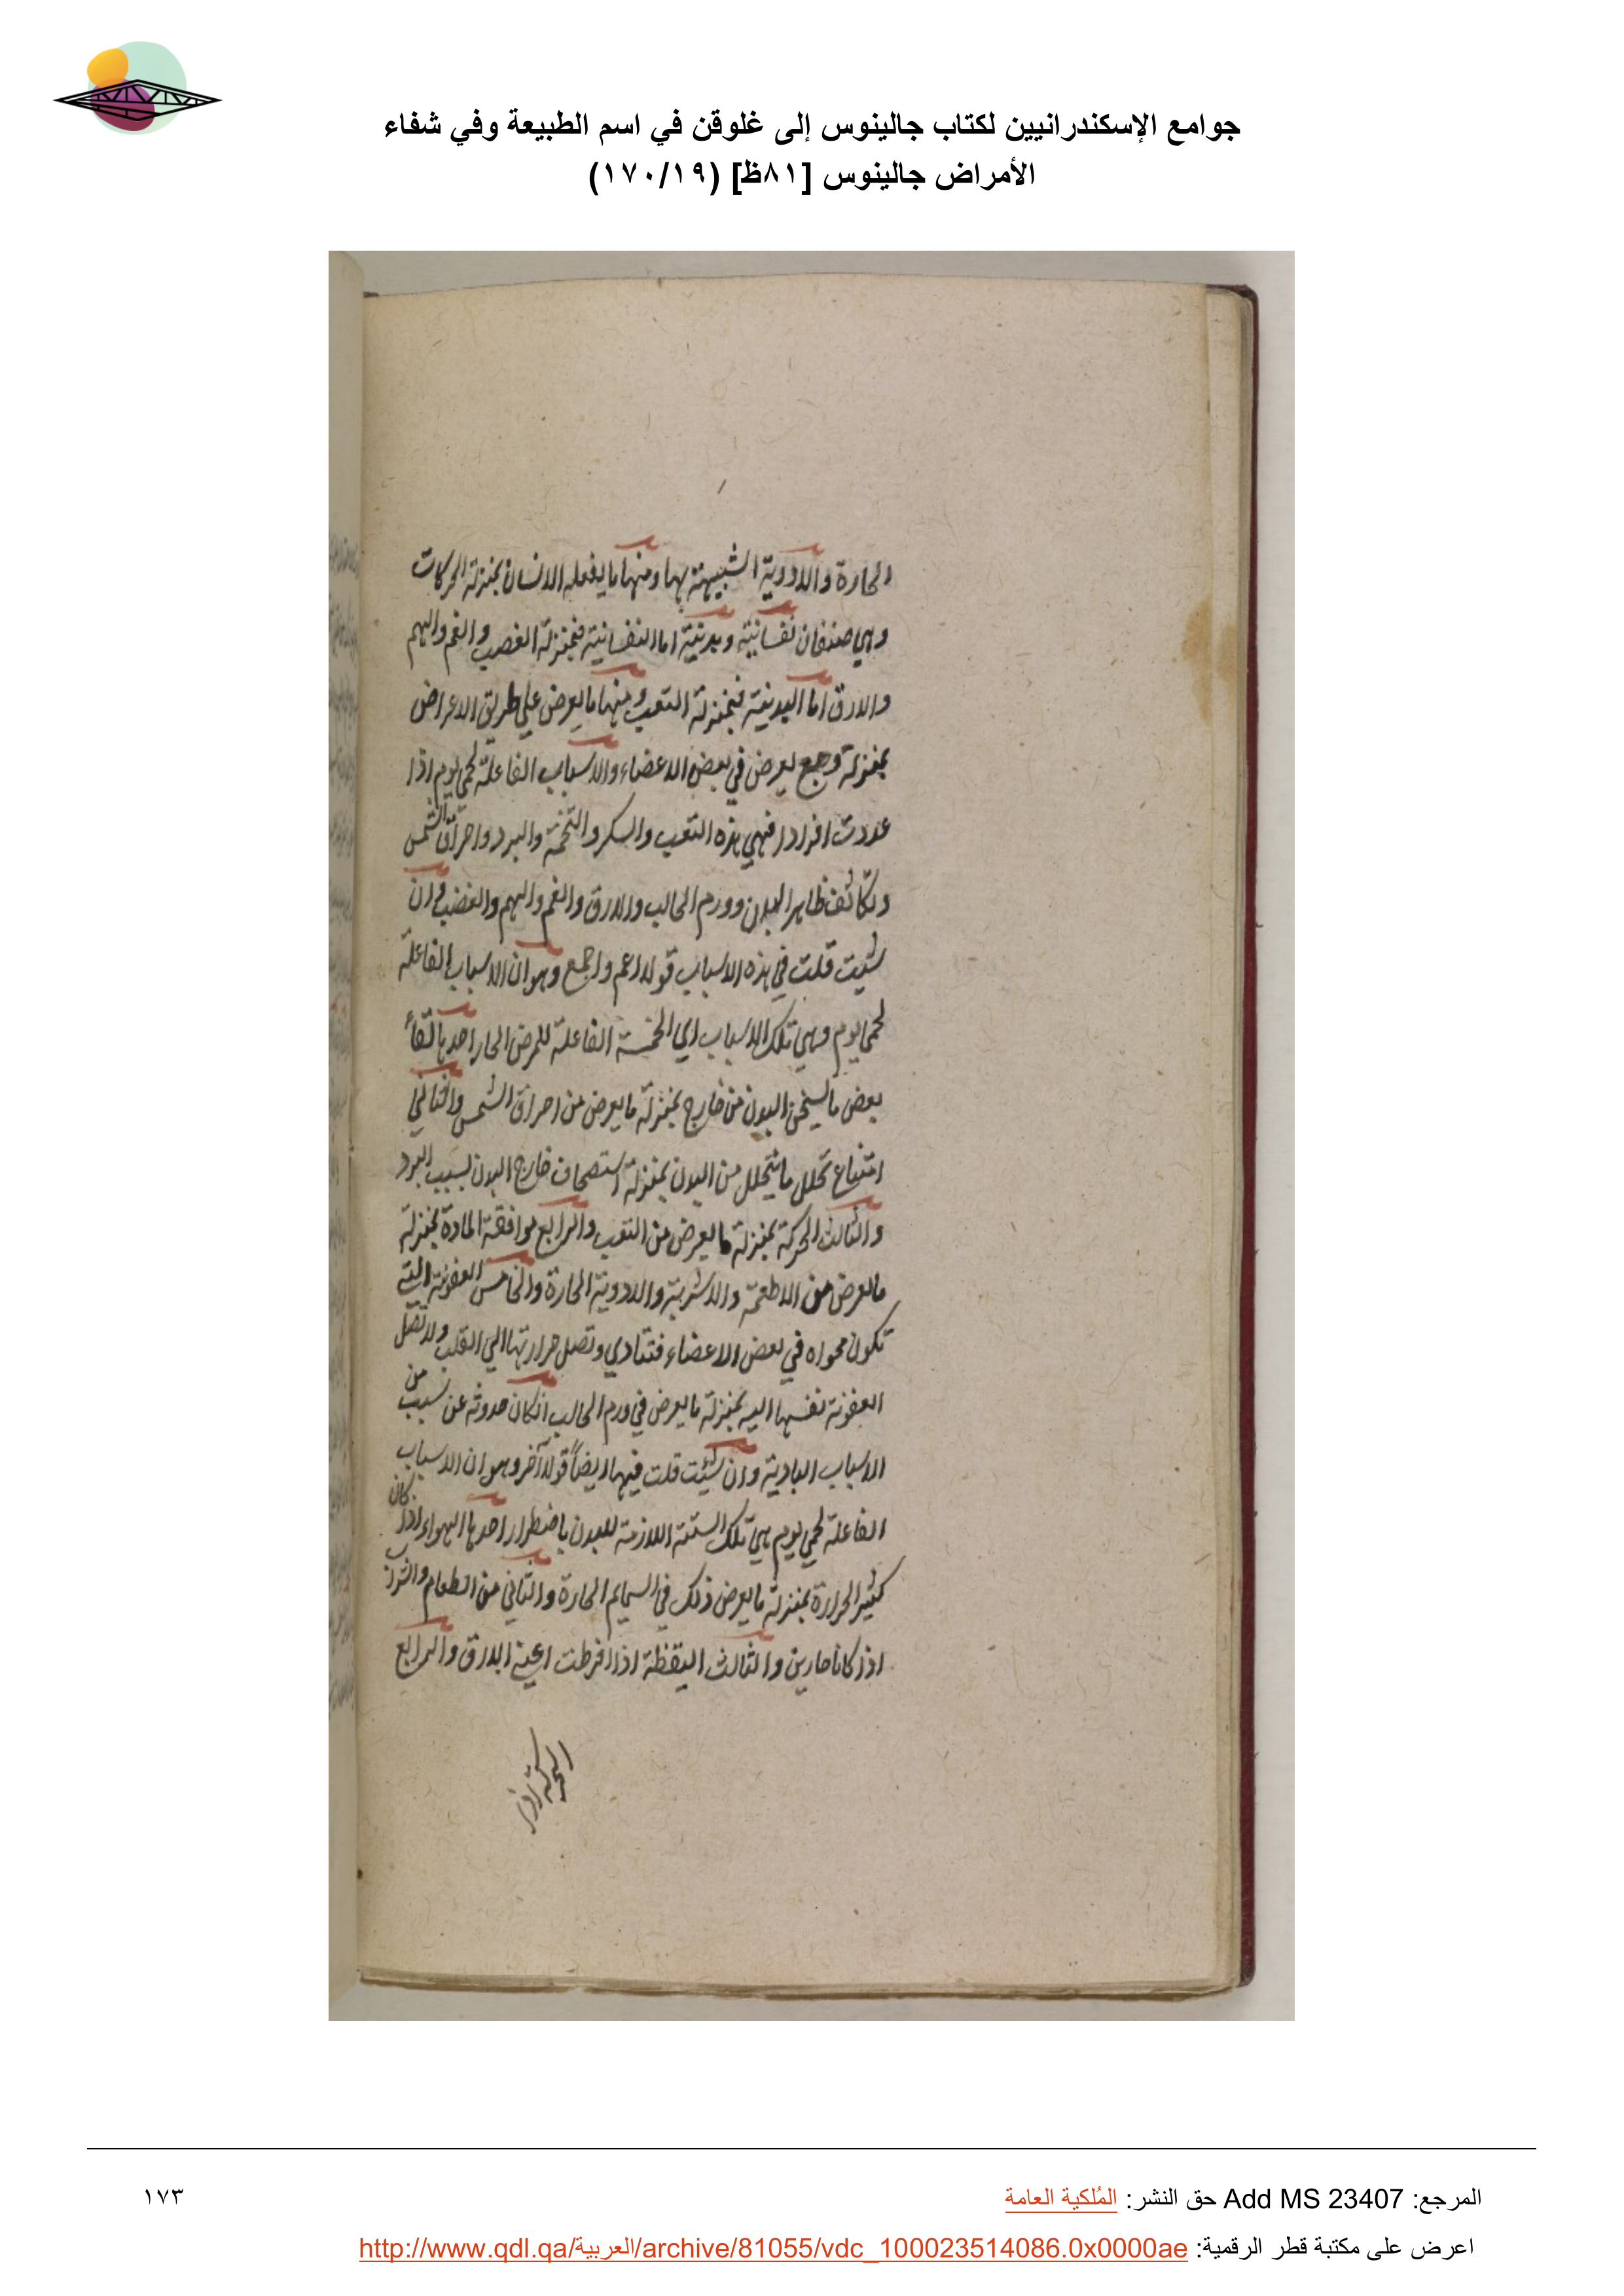 جوامع الإسكندرانيين لكتاب جالينوس إلى غلوقن في اسم الطبيعة وفي شفاء
الأمراض جالينوس [٨١ظ] (١٧٠/١٩)
الحارة والادوية الشبيهة بها ومنها ما يفعله الانسان بمنزلة الحركات
وهي صنفان نفسانية وبدنية اما النفسانية فبمنزلة الغضب والغم والهم
والارق اما البدنية فبمنزلة التعب ومنها ما يعرض علي طريق الاعراض
بمنزلة وجع يعرض في بعض الاعضاء والاسباب الفاعلة لحمي يوم اذا
عددت افرادا فهي هذه التعب والسكر والتخمة والبرد واحراق الشمس
وتكاثف ظاهر البدن وورم الحالب والارق والغم والهم والغضب وان
شئت قلت في هذه الاسباب قولا اعم واجمع وهو ان الاسباب الفاعلة
لحمي يوم وهي تلك الاسباب اي الخمسة الفاعلة للمرض الحار احدها لقاء
بعض ما يسخن البدن من خارج بمنزلة ما يعرض من احراق الشمس والثاني
امتناع تحلل ما يتحلل من البدن بمنزلة استصحاف خارج البدن بسبب البرد
والثالث الحركة بمنزلة ما يعرض من التعب والرابع موافقة المادة بمنزلة
ما يعرض من الاطعمة والاشربة والادوية الحارة والخامس العفونة التي
تكون محواه في بعض الاعضاء فتتادي وتصل حرارتها الي القلب ولا تصل
العفونة نفسها اليه بمنزلة ما يعرض في ورم الحالب ان كان حدوثه عن سبب من
الاسباب البادية وان شئت قلت فيها ايضاً قولا آخر وهو ان الاسباب
الفاعلة لحمي يوم هي تلك الستة اللازمة للبدن باضطرار احدها الهواء اذا كان
كثير الحرارة بمنزلة ما يعرض ذلك في السمايم الحارة والثاني من الطعام والشراب
اذا كانا حارين والثالث اليقظة اذا افرطت اعني الارق والرابع
الحركة اذا
المرجع: Add MS 23407 حق النشر: المُلكية العامة
١٧٣
اعرض على مكتبة قطر الرقمية: http://www.qdl.qa/العربية/archive/81055/vdc_100023514086.0x0000ae